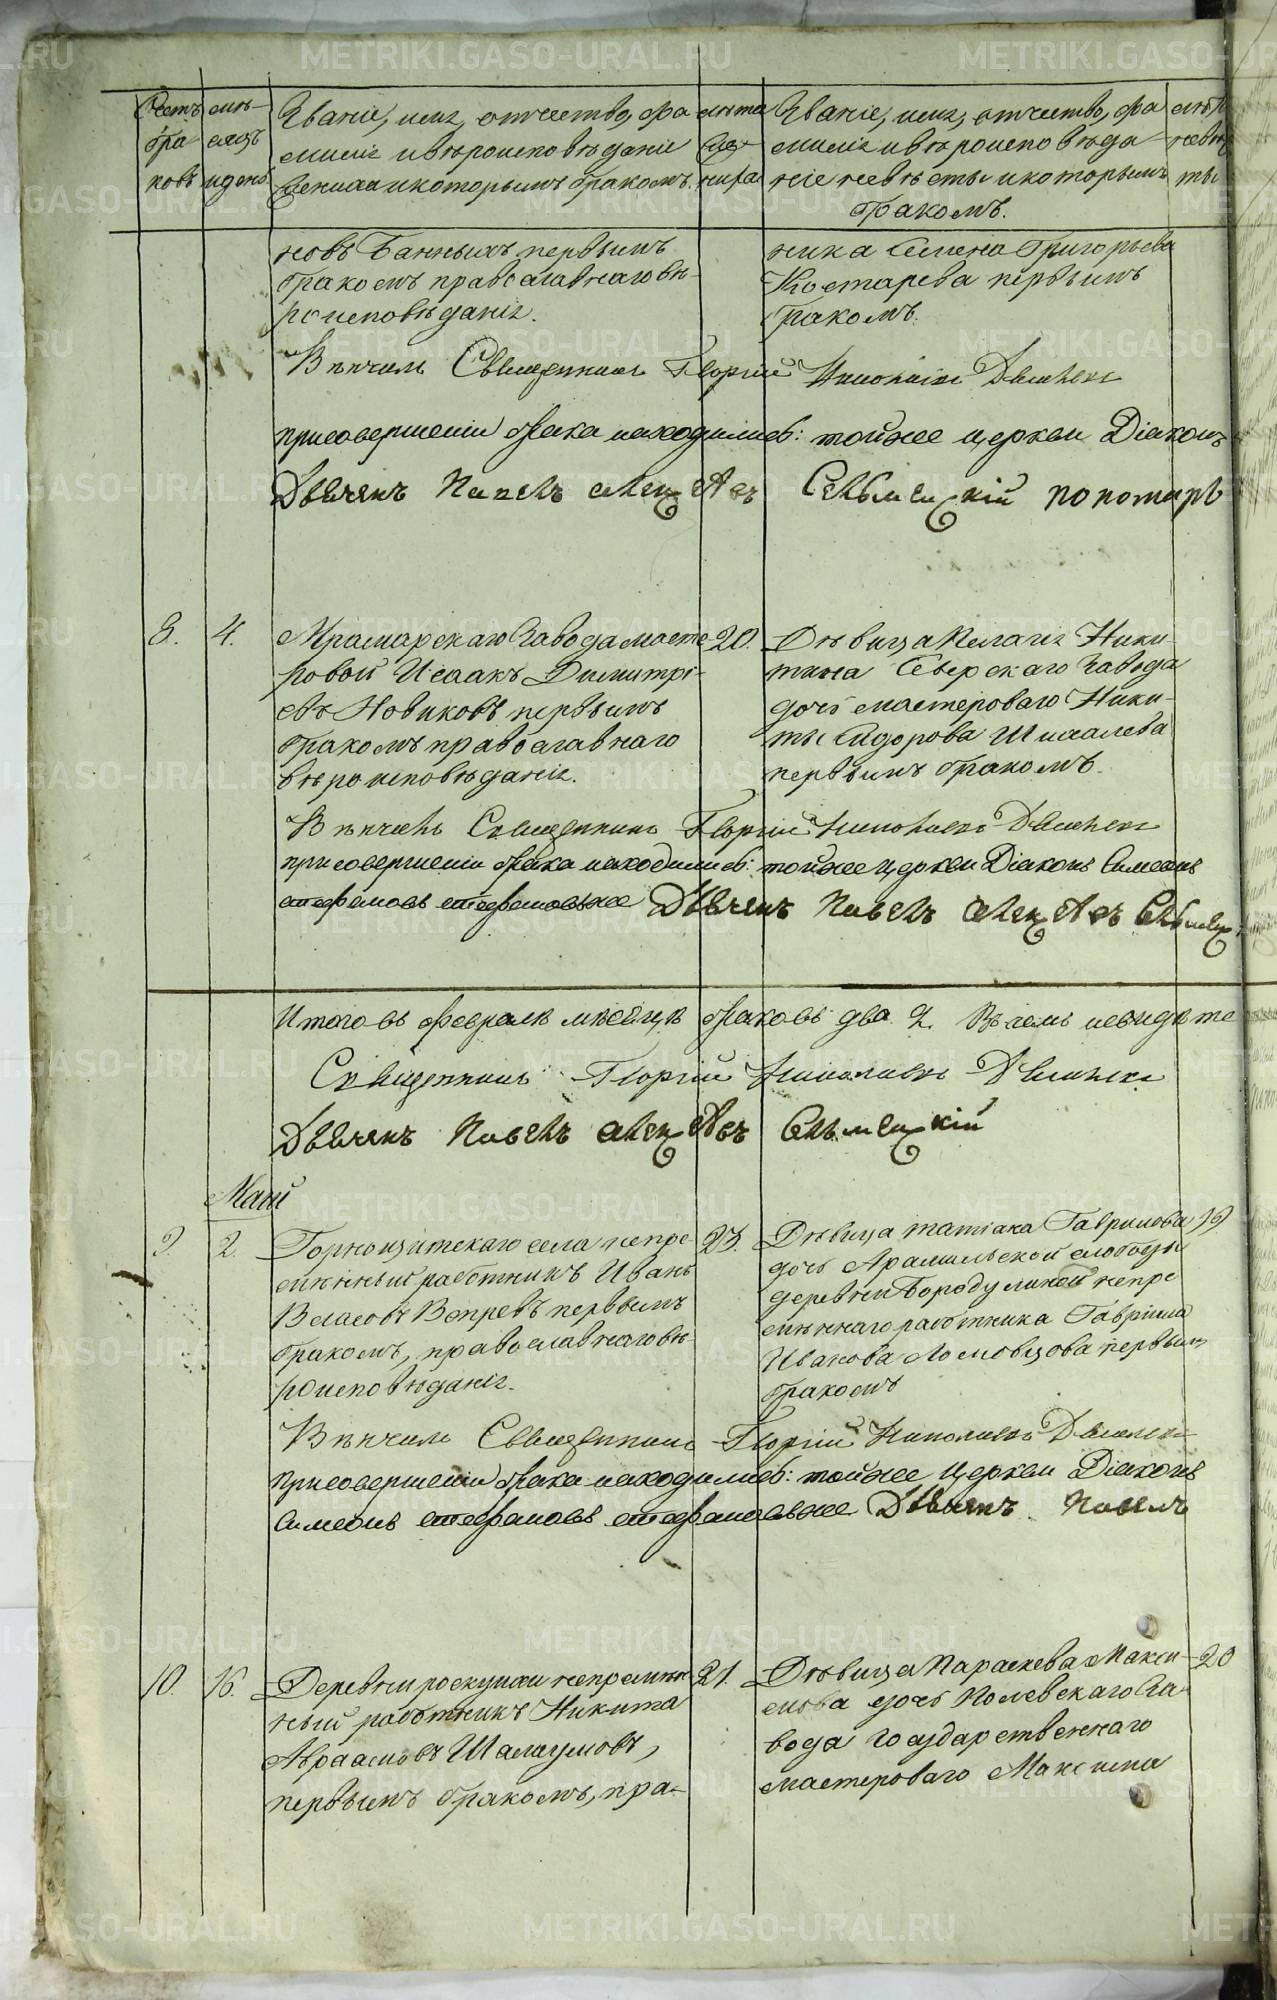 Счетъ бра ковъ
мѣ сяцъ и день
Званіе, имя, отчество, фа милія и вѣроисповѣданіе жениха и которымъ бракомъ.
лѣта же ниха
Званіе, имя, отчество, фа милія и вѣроисповѣда ніе невѣсты и которымъ бракомъ.
новъ Банныхъ первымъ
бракомъ православнаго вѣ-
роисповѣданія.
ника Семена Григорьева
Костарева первымъ
бракомъ.
Вѣнчалъ Священникъ Георгій Николаевъ
при совершеніи брака находились: тойже церкви Діаконъ
Дьячекъ Павелъ Алексѣевъ пономарь
8. 4. Мраморскаго Завода масте 20.
ровой Исаакъ Димитрі-
евъ Новиковъ первымъ
бракомъ православнаго
вѣроисповѣданія.
Дѣвица Пелагія Ники-
тина Сѣверскаго Завода
дочь мастероваго Ники-
ты Сидорова
первымъ бракомъ.
Вѣнчалъ Священникъ Георгій Николаевъ
при совершеніи брака находились: тойже церкви Діаконъ Симеонъ
Стефановъ Дьячекъ Павелъ Алексѣевъ
Итого въ февралѣ мѣсяцѣ браковъ два 2. В чемъ и свидѣте
Священникъ Георгій Николаевъ
Дьячекъ Павелъ Алексѣевъ
Маій
9. 2. Горнощитскаго села непре 23.
мѣнный работникъ Иванъ
Власовъ Вепревъ первымъ
бракомъ, православнаго вѣ
роисповѣданія.
Дѣвица Татіана Гаврилова 19
дочь Арамильской слободы
деревни Бородулиной непре
мѣннаго работника Гавріила
Иванова Ломовцова первымъ
бракомъ
Вѣнчалъ Священникъ Георгій Николаевъ
при совершеніи брака находились: тойже церкви Діаконъ
Симеонъ Стефановъ Дьячекъ Павелъ
10. 16. Деревни роскуихи непремѣн 21.
ный работникъ Никита
Авраамовъ Шалаумовъ,
первымъ бракомъ, пра-
Дѣвица Параскева Макси- 20
мова дочь Полевскаго За-
вода Государственнаго
мастероваго Максима
METRIKI.GASO-URAL.RU